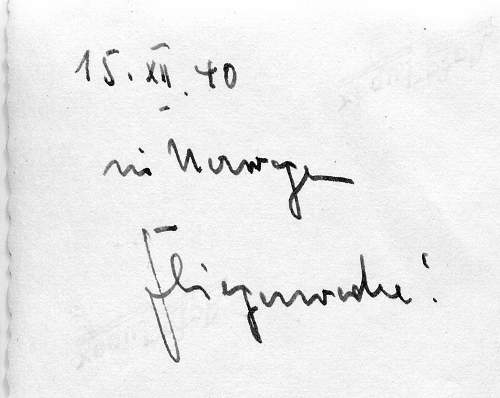 15. XII. 40
in Norwegen
Fliegerwache!